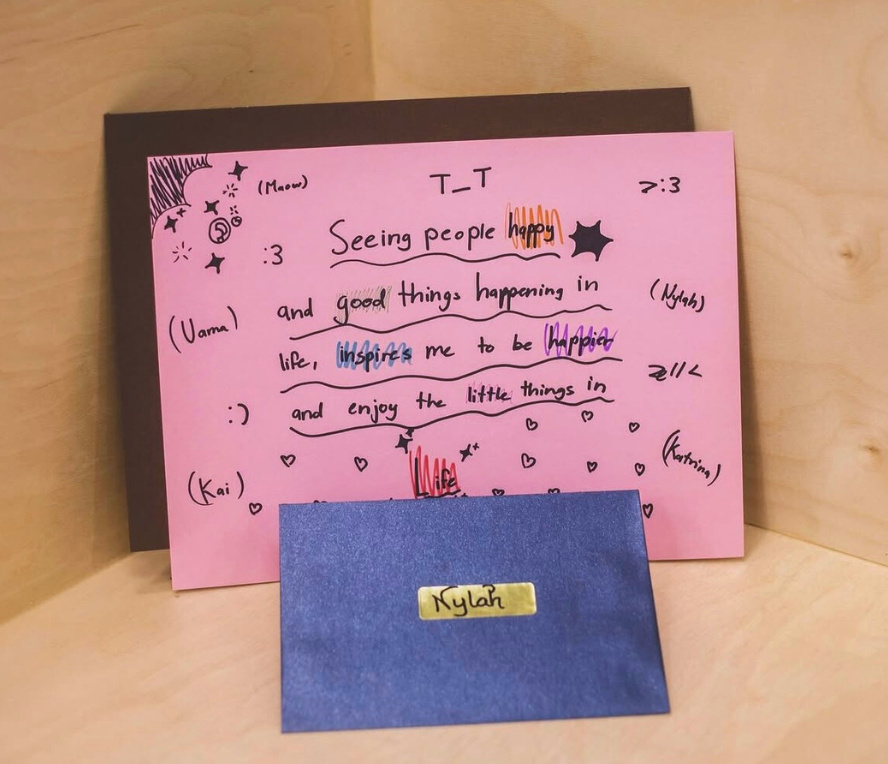 (Maow)
T_T
>:3
:3
Seeing people happy
and good things happening in
(Nylah)
(Uama)
life, inspires me to be happier
:)
and enjoy the little things in
(Kai)
Life
(Katrina)
Nylah